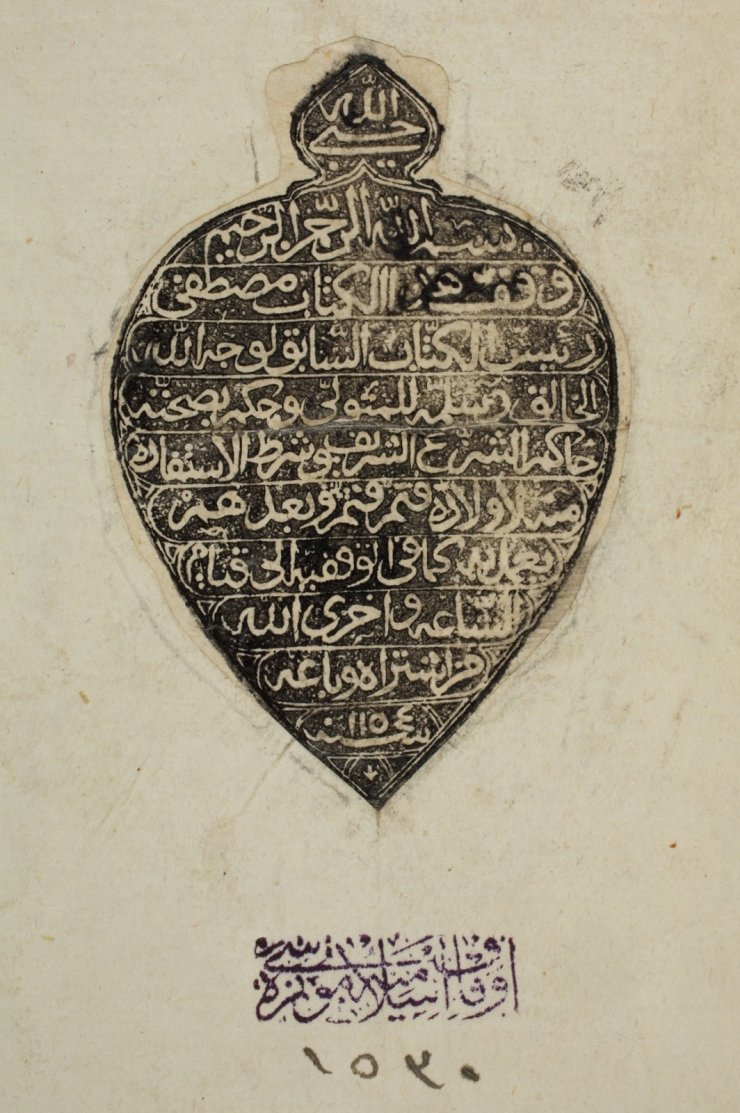 حسبي الله
بسم الله الرحمن الرحيم
وقف هذا الكتاب مصطفى
رئيس الكتاب السابق لوجه الله
الخالق وسلمه للمتولي وحكم بصحته
حاكم الشرع الشريف وشرط الاستفادة
منه لاولاده ثم فثم وبعدهم
يعمل به كما في الوقفية الى قيام
الساعة واخزى الله
من اشتراه وباعه
سنه ١١٥٤
اوقاف اسلاميه موزه سى
١٥٣٠